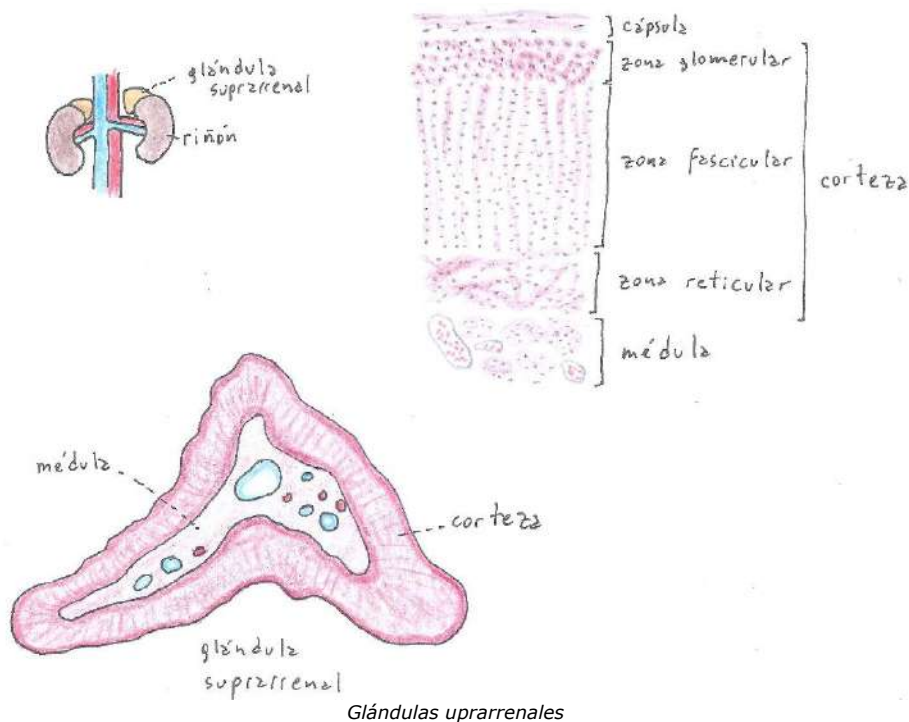 glándula
suprarrenal
riñón
cápsula
zona glomerular
zona fascicular
corteza
zona reticular
médula
médula
corteza
glándula
suprarrenal
Glándulas uprarrenales